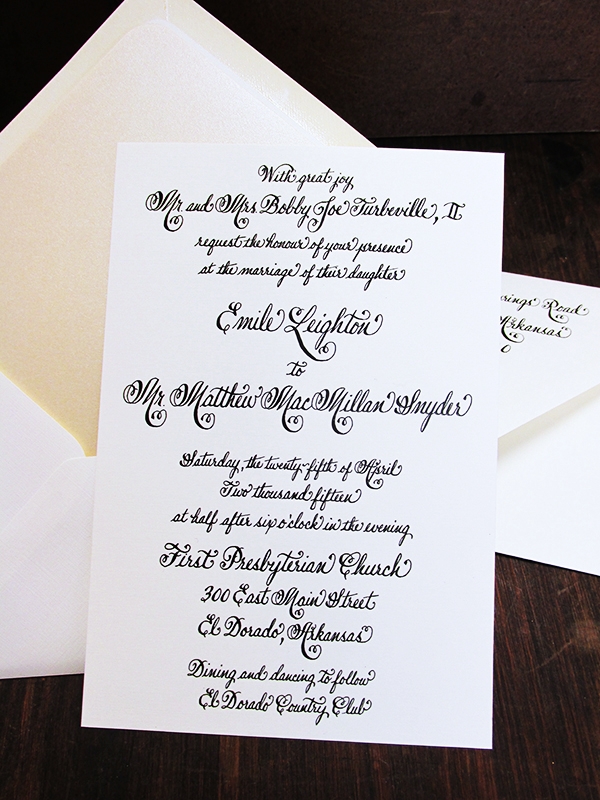 With great joy
Mr. and Mrs. Bobby Joe Turbeville, II
request the honour of your presence
at the marriage of their daughter
Emile Leighton
to
Mr. Matthew MacMillan Snyder
Saturday, the twenty-fifth of April
Two thousand fifteen
at half after six o'clock in the evening
First Presbyterian Church
300 East Main Street
El Dorado, Arkansas
Dining and dancing to follow
El Dorado Country Club
Road
Arkansas